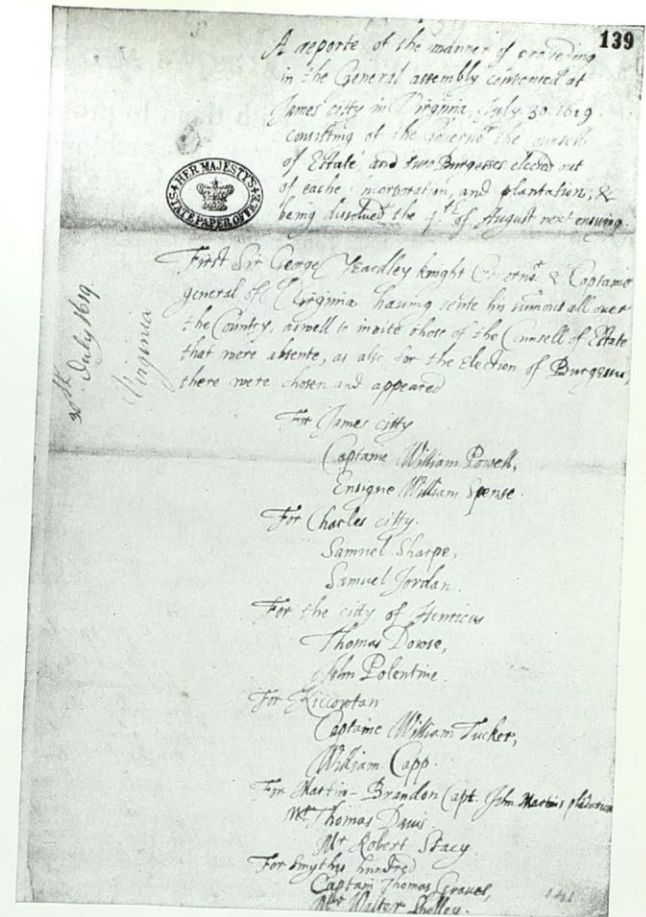 139
A reporte of the manner of proceeding
in the General assembly convented at
James citty in Virginia, July 30. 1619.
consisting of the Governor, the counsell
of Estate and two Burgesses elected out
of eache incorporation, and plantation, &
being dissolved the 4th of August next ensuing.
HER MAJESTY'S STATE PAPER OFFICE
First Sir George Yeardley knight Governor & Captaine
general of Virginia having sente his sumons all over
the Country, aswell to invite those of the Counsell of Estate
that were absente, as also for the election of Burgesses,
there were chosen and appeared
30th July 1619
Virginia
For James citty
Captaine William Powell,
Ensigne William Spense.
For Charles citty.
Samuel Sharpe,
Samuel Jordan.
For the city of Henricus
Thomas Dowse,
John Polentine.
For Kiccowtan
Captaine William Tucker,
William Capp.
For Martin-Brandon Capt. John Martins plantation
Mr Thomas Davis.
Mr Robert Stacy
For Smythes hundred
Captain Thomas Graves,
Mr Walter Shelley.
141